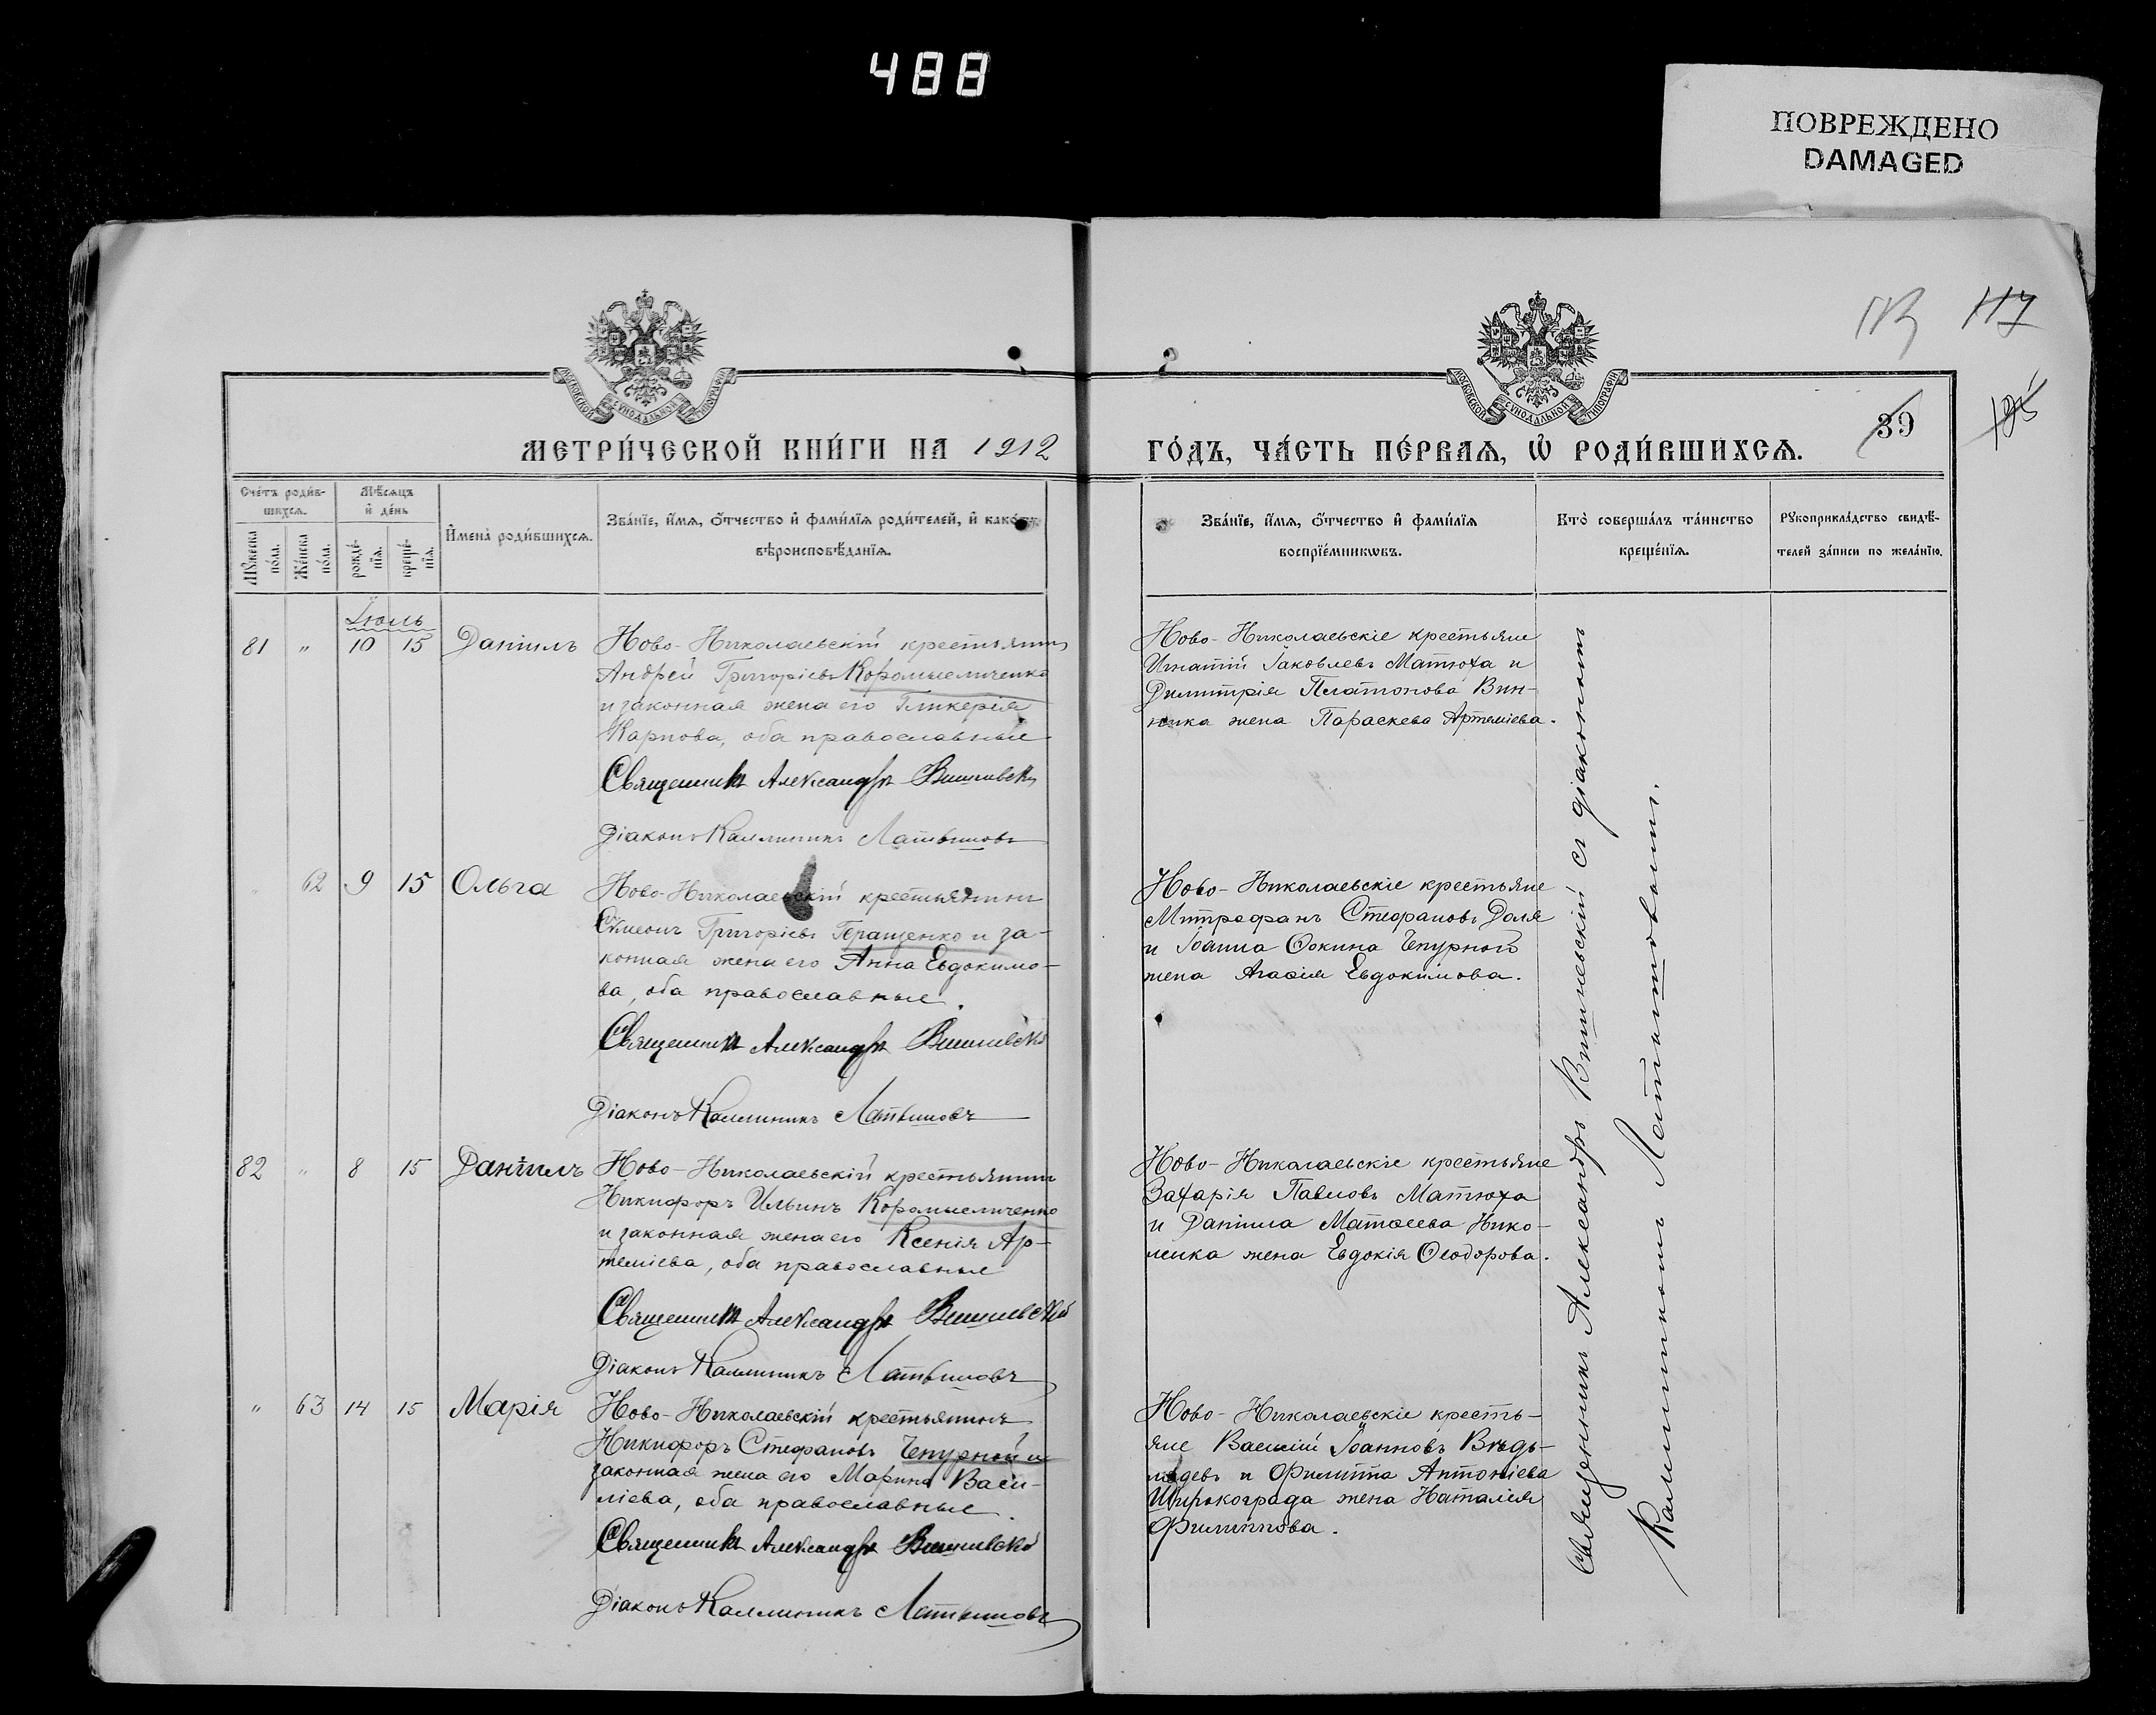 488
ПОВРЕЖДЕНО
DAMAGED
117
МОСКОВСКОЙ СѴНОДАЛЬНОЙ ТИПОГРАФІИ
МОСКОВСКОЙ СѴНОДАЛЬНОЙ ТИПОГРАФІИ
39
МЕТРИ́ЧЕСКОЙ КНИ́ГИ НА 1912
ГО́ДЪ, ЧА́СТЬ ПЕ́РВАѦ, Ѡ҆ РОДИ́ВШИХСѦ.
Сче́тъ роди́в-
шихсѧ.
Мꙋ́жеска по́ла.
Же́нска по́ла.
Мѣ́сѧцъ
и҆ де́нь
рожде́-
нїѧ.
креще́-
нїѧ.
И҆мена̀ роди́вшихсѧ.
Зва́нїе, и҆́мѧ, ѻ҆́тчество и҆ фами́лїѧ роди́телей, и҆ како́гѡ
вѣроисповѣ́данїѧ.
Зва́нїе, и҆́мѧ, ѻ҆́тчество и҆ фами́лїѧ
воспрїе́мникѡвъ.
Кто̀ соверша́лъ та́инство
креще́нїѧ.
Рꙋкоприкла́дство свидѣ́-
телей за́писи по жела́нїю.
Іюль
81 " 10 15 Даніилъ
Ново-Николаевскій крестьянинъ
Андрей Григоріевъ Коромысличенко
и законная жена его Гликерія
Карпова, оба православные
Священникъ Александръ Вишневскій
Діаконъ Каллиникъ
Ново-Николаевскіе крестьяне
Игнатій Іаковлевъ Матюха и
Димитрія Платонова Вин-
ника жена Параскева Артеміева.
" 62 9 15 Ольга
Ново-Николаевскій крестьянинъ
Симеонъ Григоріевъ Геращенко и за-
конная жена его Анна Евдокимо-
ва, оба православные.
Священникъ Александръ Вишневскій
Діаконъ Каллиникъ
Ново-Николаевскіе крестьяне
Митрофанъ Стефановъ Доля
и Іоанна Ѳокина Чепурного
жена Агаѳія Евдокимова.
82 " 8 15 Даніилъ
Ново-Николаевскій крестьянинъ
Никифоръ Ильинъ Коромысличенко
и законная жена его Ксенія Ар-
теміева, оба православные
Священникъ Александръ Вишневскій
Діаконъ Каллиникъ
Ново-Николаевскіе крестьяне
Захарія Павловъ Матюха
и Даніила Матѳеева Нико-
ленка жена Евдокія Ѳеодорова.
" 63 14 15 Марія
Ново-Николаевскій крестьянинъ
Никифоръ Стефановъ Чепурной и
законная жена его Марина Васи-
ліева, оба православные.
Священникъ Александръ Вишневскій
Діаконъ Каллиникъ
Ново-Николаевскіе кресть-
яне Василій Іоанновъ
и Филиппа Антоніева
Широкограда жена Наталія
Филиппова.
Священникъ Александръ Вишневскій съ діакономъ
Каллиникомъ